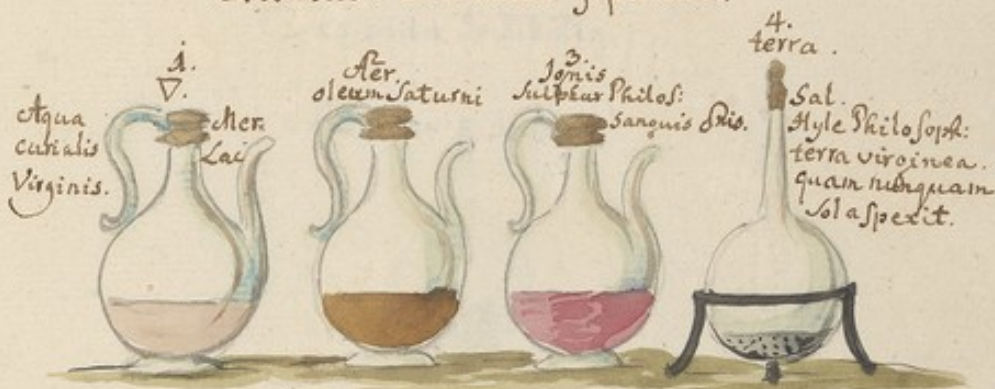 1.
▽.
Aqua Mer:
curialis Lac
Virginis.
Aer.
oleum Saturni
3.
Ignis
Sulphur Philos:
Sanguis
4.
terra.
Sal.
Hyle Philosoph:
terra virginea.
quam nunquam
Sol aspexit.